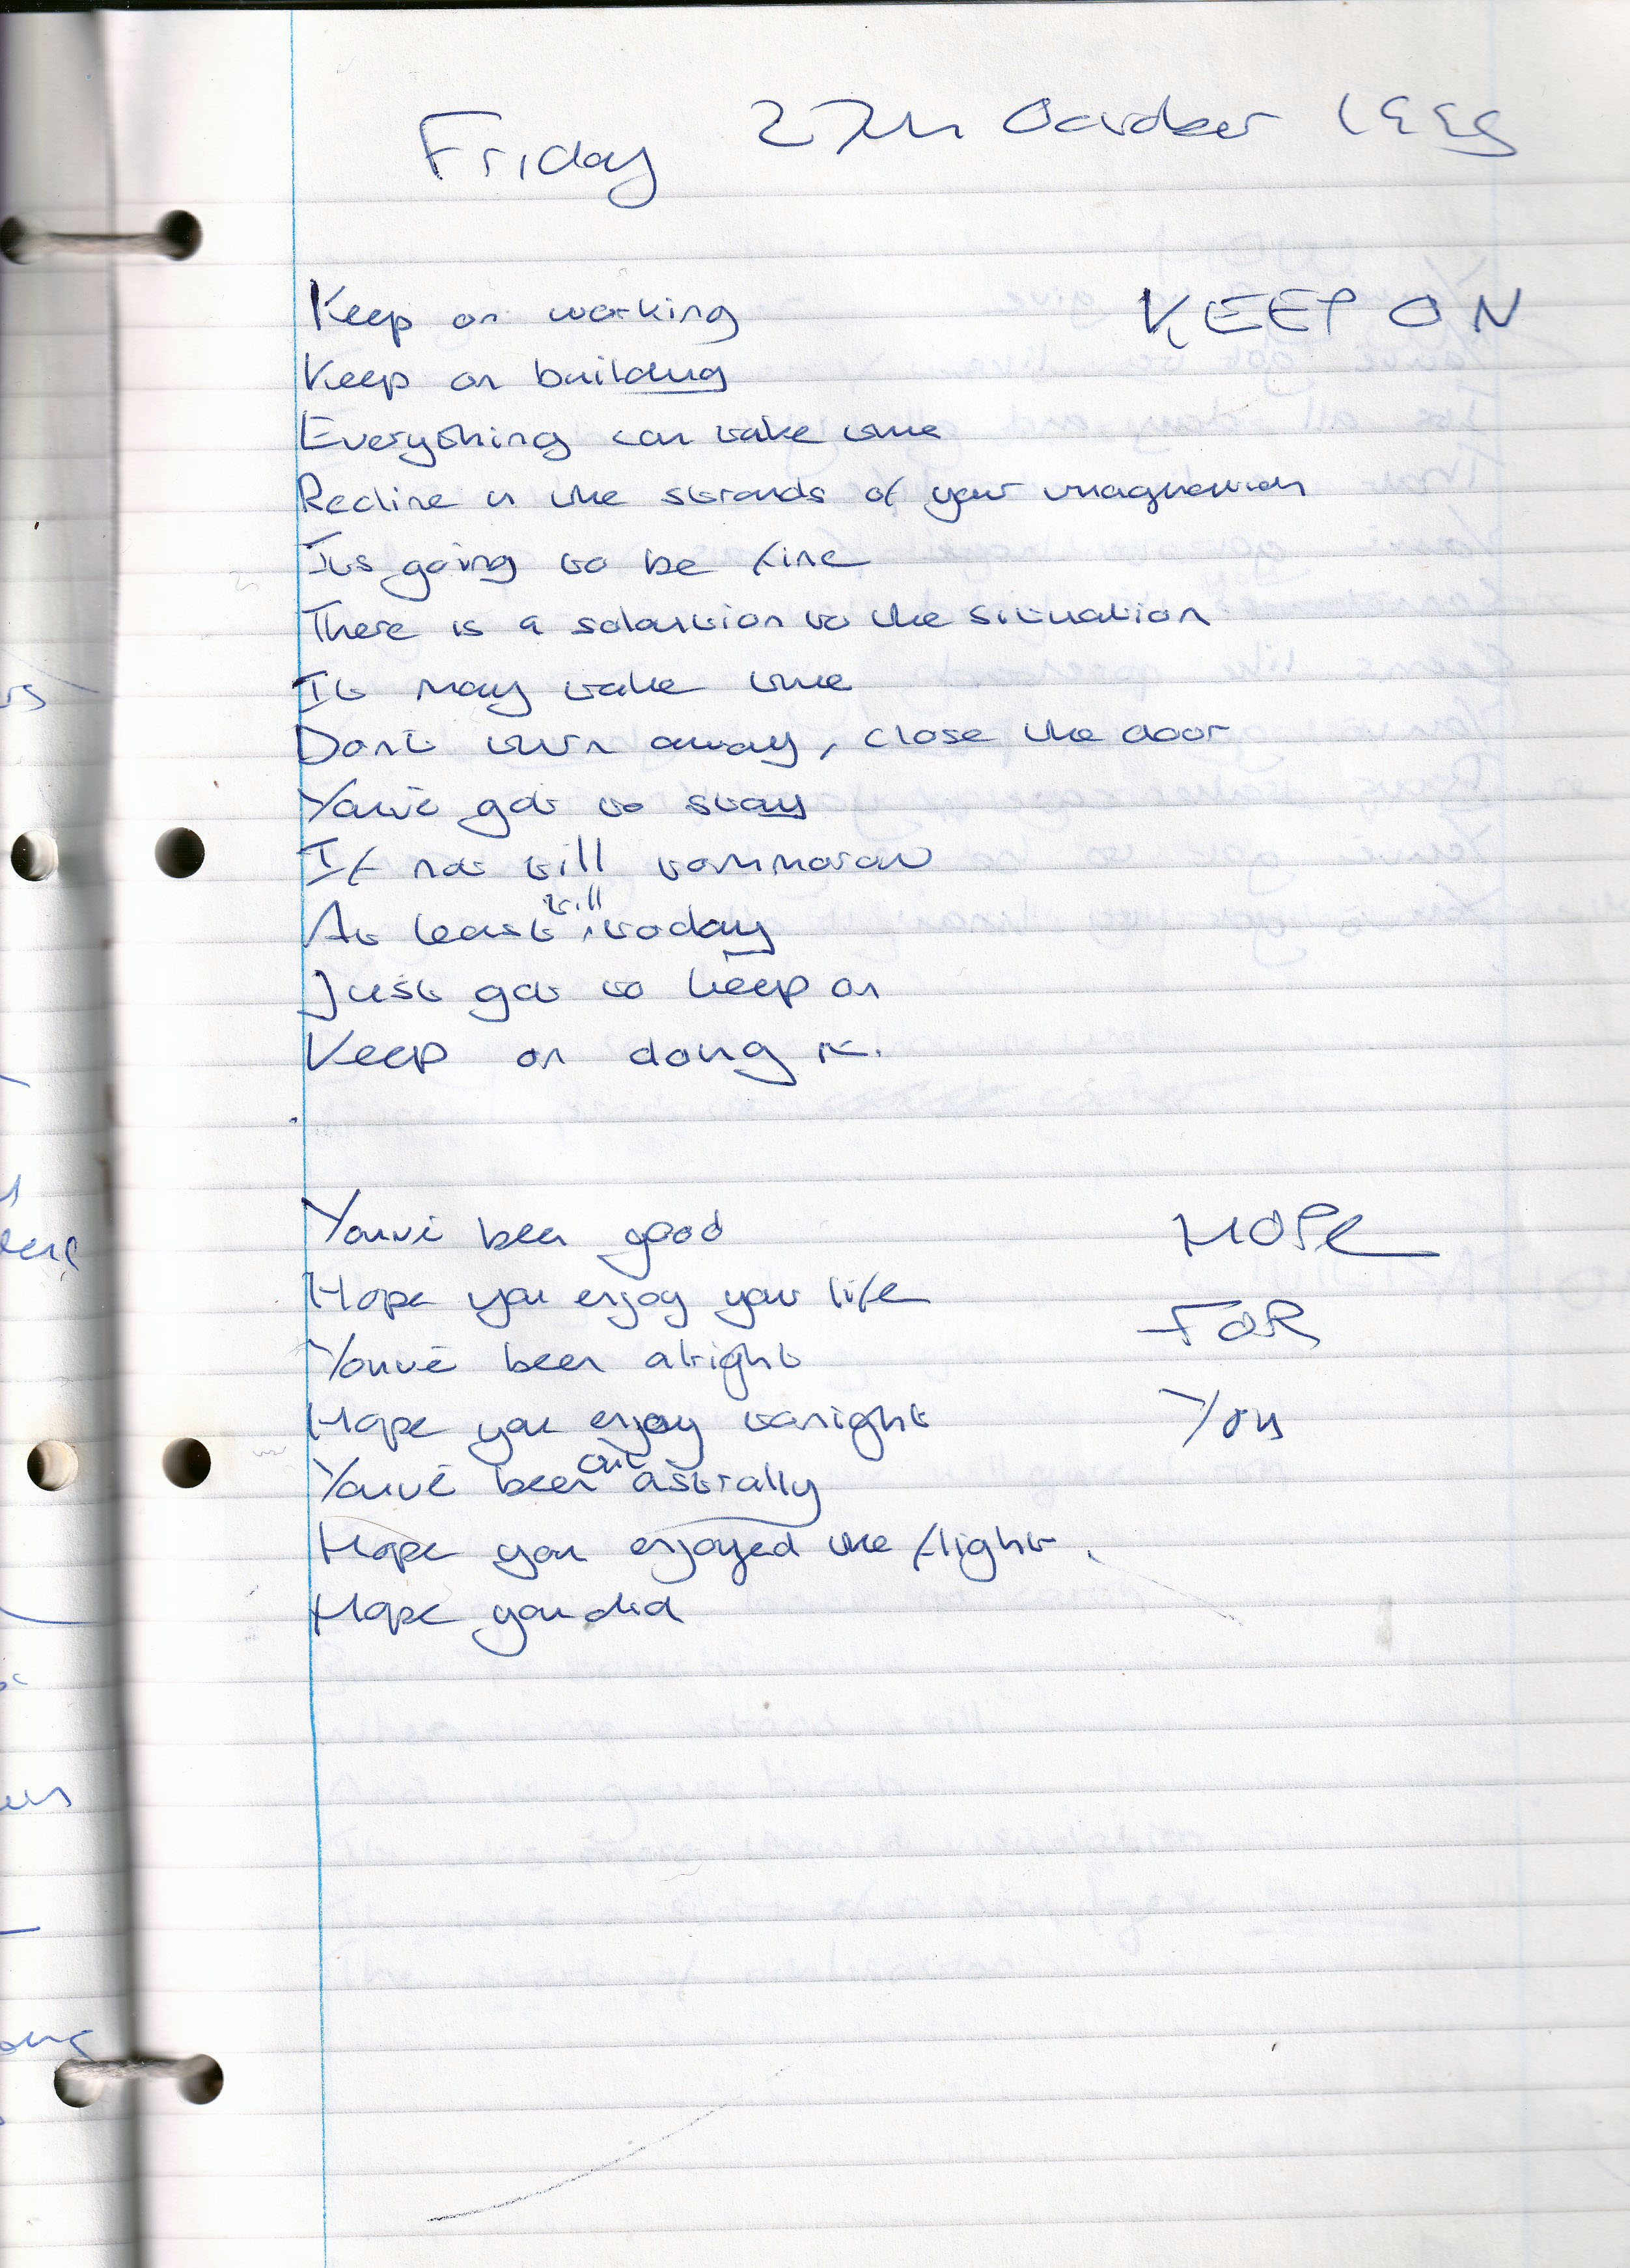 Friday 27th October 1995
KEEP ON
Keep on working
Keep on building
Everything can take time
Recline in the strands of your imagination
Its going to be fine
There is a solution to the situation
It may take time
Dont turn away, close the door
Youve got to stay
If not till tommorow
At least till today
Just got to keep on
Keep on doing it.
HOPE
FOR
YOU
Youve been good
Hope you enjoy your life
Youve been alright
Hope you enjoy tonight
Youve been out astrally
Hope you enjoyed the flight.
Hope you did